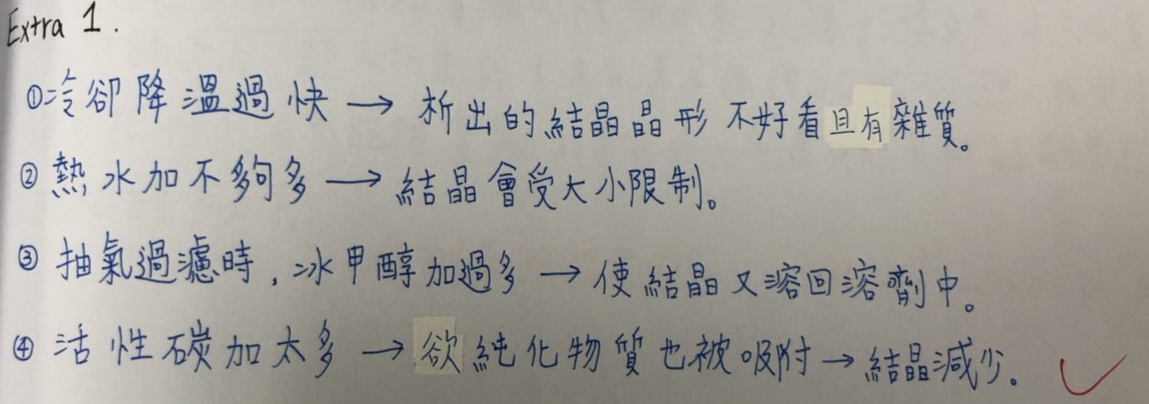 Extra 1.
①冷卻降溫過快 → 析出的結晶晶形不好看且有雜質。
② 熱水加不夠多 → 結晶會受大小限制。
③ 抽氣過濾時,冰甲醇加過多 → 使結晶又溶回溶劑中。
④ 活性碳加太多 → 欲純化物質也被吸附 → 結晶減少。